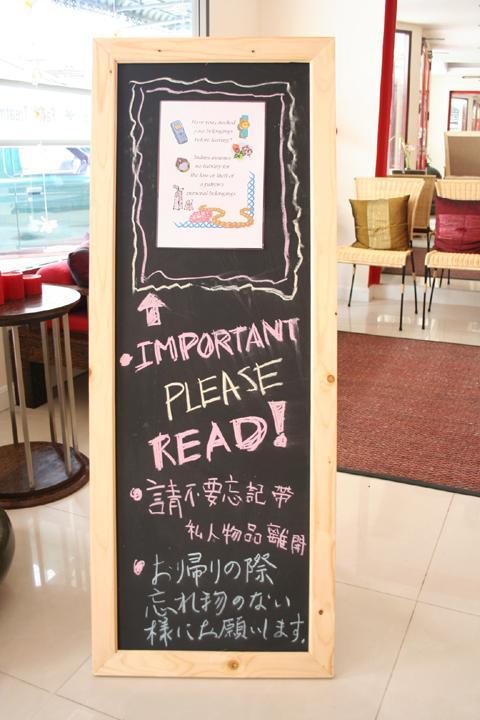 Have you checked
your belongings
before leaving?
assumes
no liability for
the loss or theft of
a patron's
personal belongings
IMPORTANT
PLEASE
READ!
請不要忘記帶
私人物品離開
お帰りの際
忘れ物のない
様にお願いします。